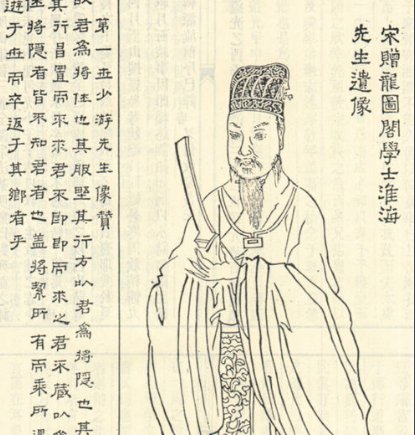 宋贈龍圖閣學士淮海
先生遺像
第一世少游先生像贊
以君為將仕也其服野其行方以君為將隱也其
其行昌置而不求君不即即而求之君不藏以為
仕將隱者皆不知君者也蓋將挈所有而乘所遇
遊于世而卒返于其鄉者乎